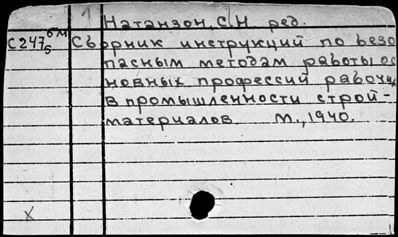 1 Натанзон, С.Н ред.
С247 5 6м Сборник инструкций по безо
пасным методам работы ос
новных профессий рабочих
в промышленности строй-
материалов. М., 1940.
x